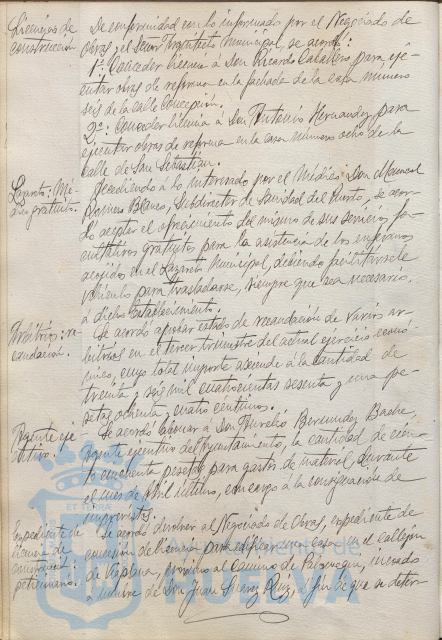 Licencias de
construcción
De conformidad con lo informado por el Negociado de
Obras y el Señor Arquitecto Municipal, se acordó:
1º: Conceder licencia á Don Ricardo Caballero para eje-
cutar obras de reforma en la fachada de la casa número
seis de la calle Concepción.
2º: Conceder licencia á Don Antonio Hernandez para
ejecutar obras de reforma en la casa número ocho de la
calle de San Sebastian.
Lazareto: Mé-
dico gratuito.
Accediendo á lo interesado por el Médico Don Manuel
Blanco, Subdirector de Sanidad del Puerto, se acor-
dó aceptar el ofrecimiento del mismo de sus servicios fa-
cultativos gratuitos para la asistencia de los enfermos
acogidos en el Lazareto Municipal, debiendo facilitársele
vehículo para trasladarse, siempre que sea necesario,
á dicho establecimiento.
Arbitrios: re-
caudación.
Se acordó aprobar estado de recaudación de varios ar-
bitrios en el tercer trimestre del actual ejercicio econó-
mico, cuyo total importe asciende á la cantidad de
treinta y seis mil cuatrocientas sesenta y una pe-
setas ochenta y cuatro céntimos.
Agente eje-
cutivo.
Se acordó abonar á Don Aurelio Bermudez Bache,
Agente ejecutivo del Ayuntamiento, la cantidad de cien-
to cincuenta pesetas para gastos de material, durante
el mes de Abril último, con cargo á la consignación de
imprevistos.
Expediente de
licencia de
construcción
Se acordó devolver al Negociado de Obras, expediente de
concesión de licencia para edificar una casa en el callejón
de, próximo al camino de, incoado
á nombre de Don Juan Suarez Ruiz, á fin de que se deter-
ET TERRÆ
Ayuntamiento de
HUELVA